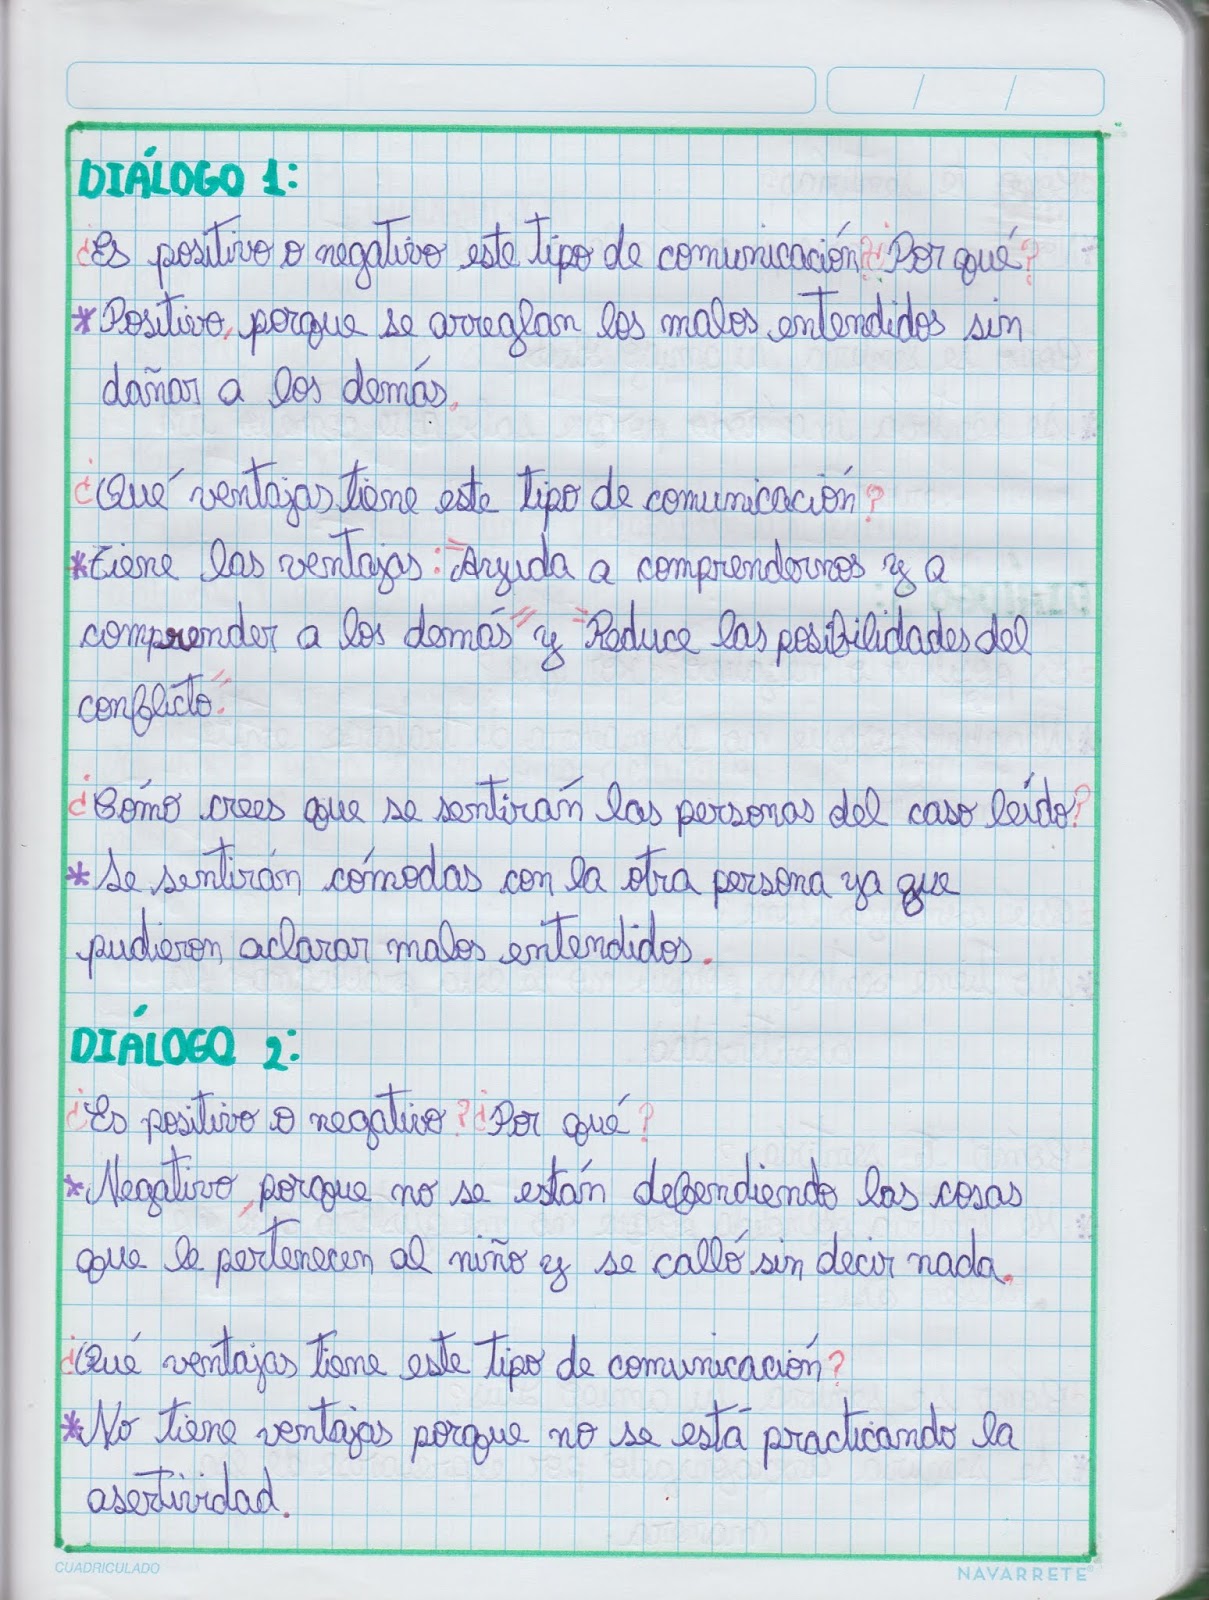 DIÁLOGO 1:
¿Es positivo o negativo este tipo de comunicación? ¿Por qué?
* Positivo, porque se arreglan los malos entendidos sin
dañar a los demás.
¿Qué ventajas tiene este tipo de comunicación?
* Tiene las ventajas: "Ayuda a comprendernos y a
comprender a los demás" y "Reduce las posibilidades del
conflicto".
¿Cómo crees que se sentirán las personas del caso leído?
* Se sentirán cómodas con la otra persona ya que
pudieron aclarar malos entendidos.
DIÁLOGO 2:
¿Es positivo o negativo? ¿Por qué?
* Negativo, porque no se están defendiendo las cosas
que le pertenecen al niño y se calló sin decir nada.
¿Qué ventajas tiene este tipo de comunicación?
* No tiene ventajas porque no se está practicando la
asertividad.
CUADRICULADO
NAVARRETE